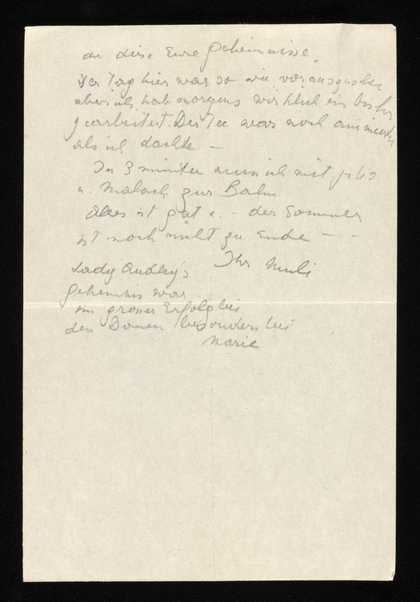 an diese Eure Geheimnisse.
Der Tag hier war so wie vorausgesehen
aber ich hab morgens wirklich ein bischen
gearbeitet. Der Tee war noch
als ich dachte –
In 3 Minuten muss ich mit
u. zur Bahn
Alles ist gut u. – der Sommer
ist noch nicht zu Ende – –
Ihr
Lady Audley's
Geheimnis war
ein grosser Erfolg bei
den Damen besonders bei
Marie